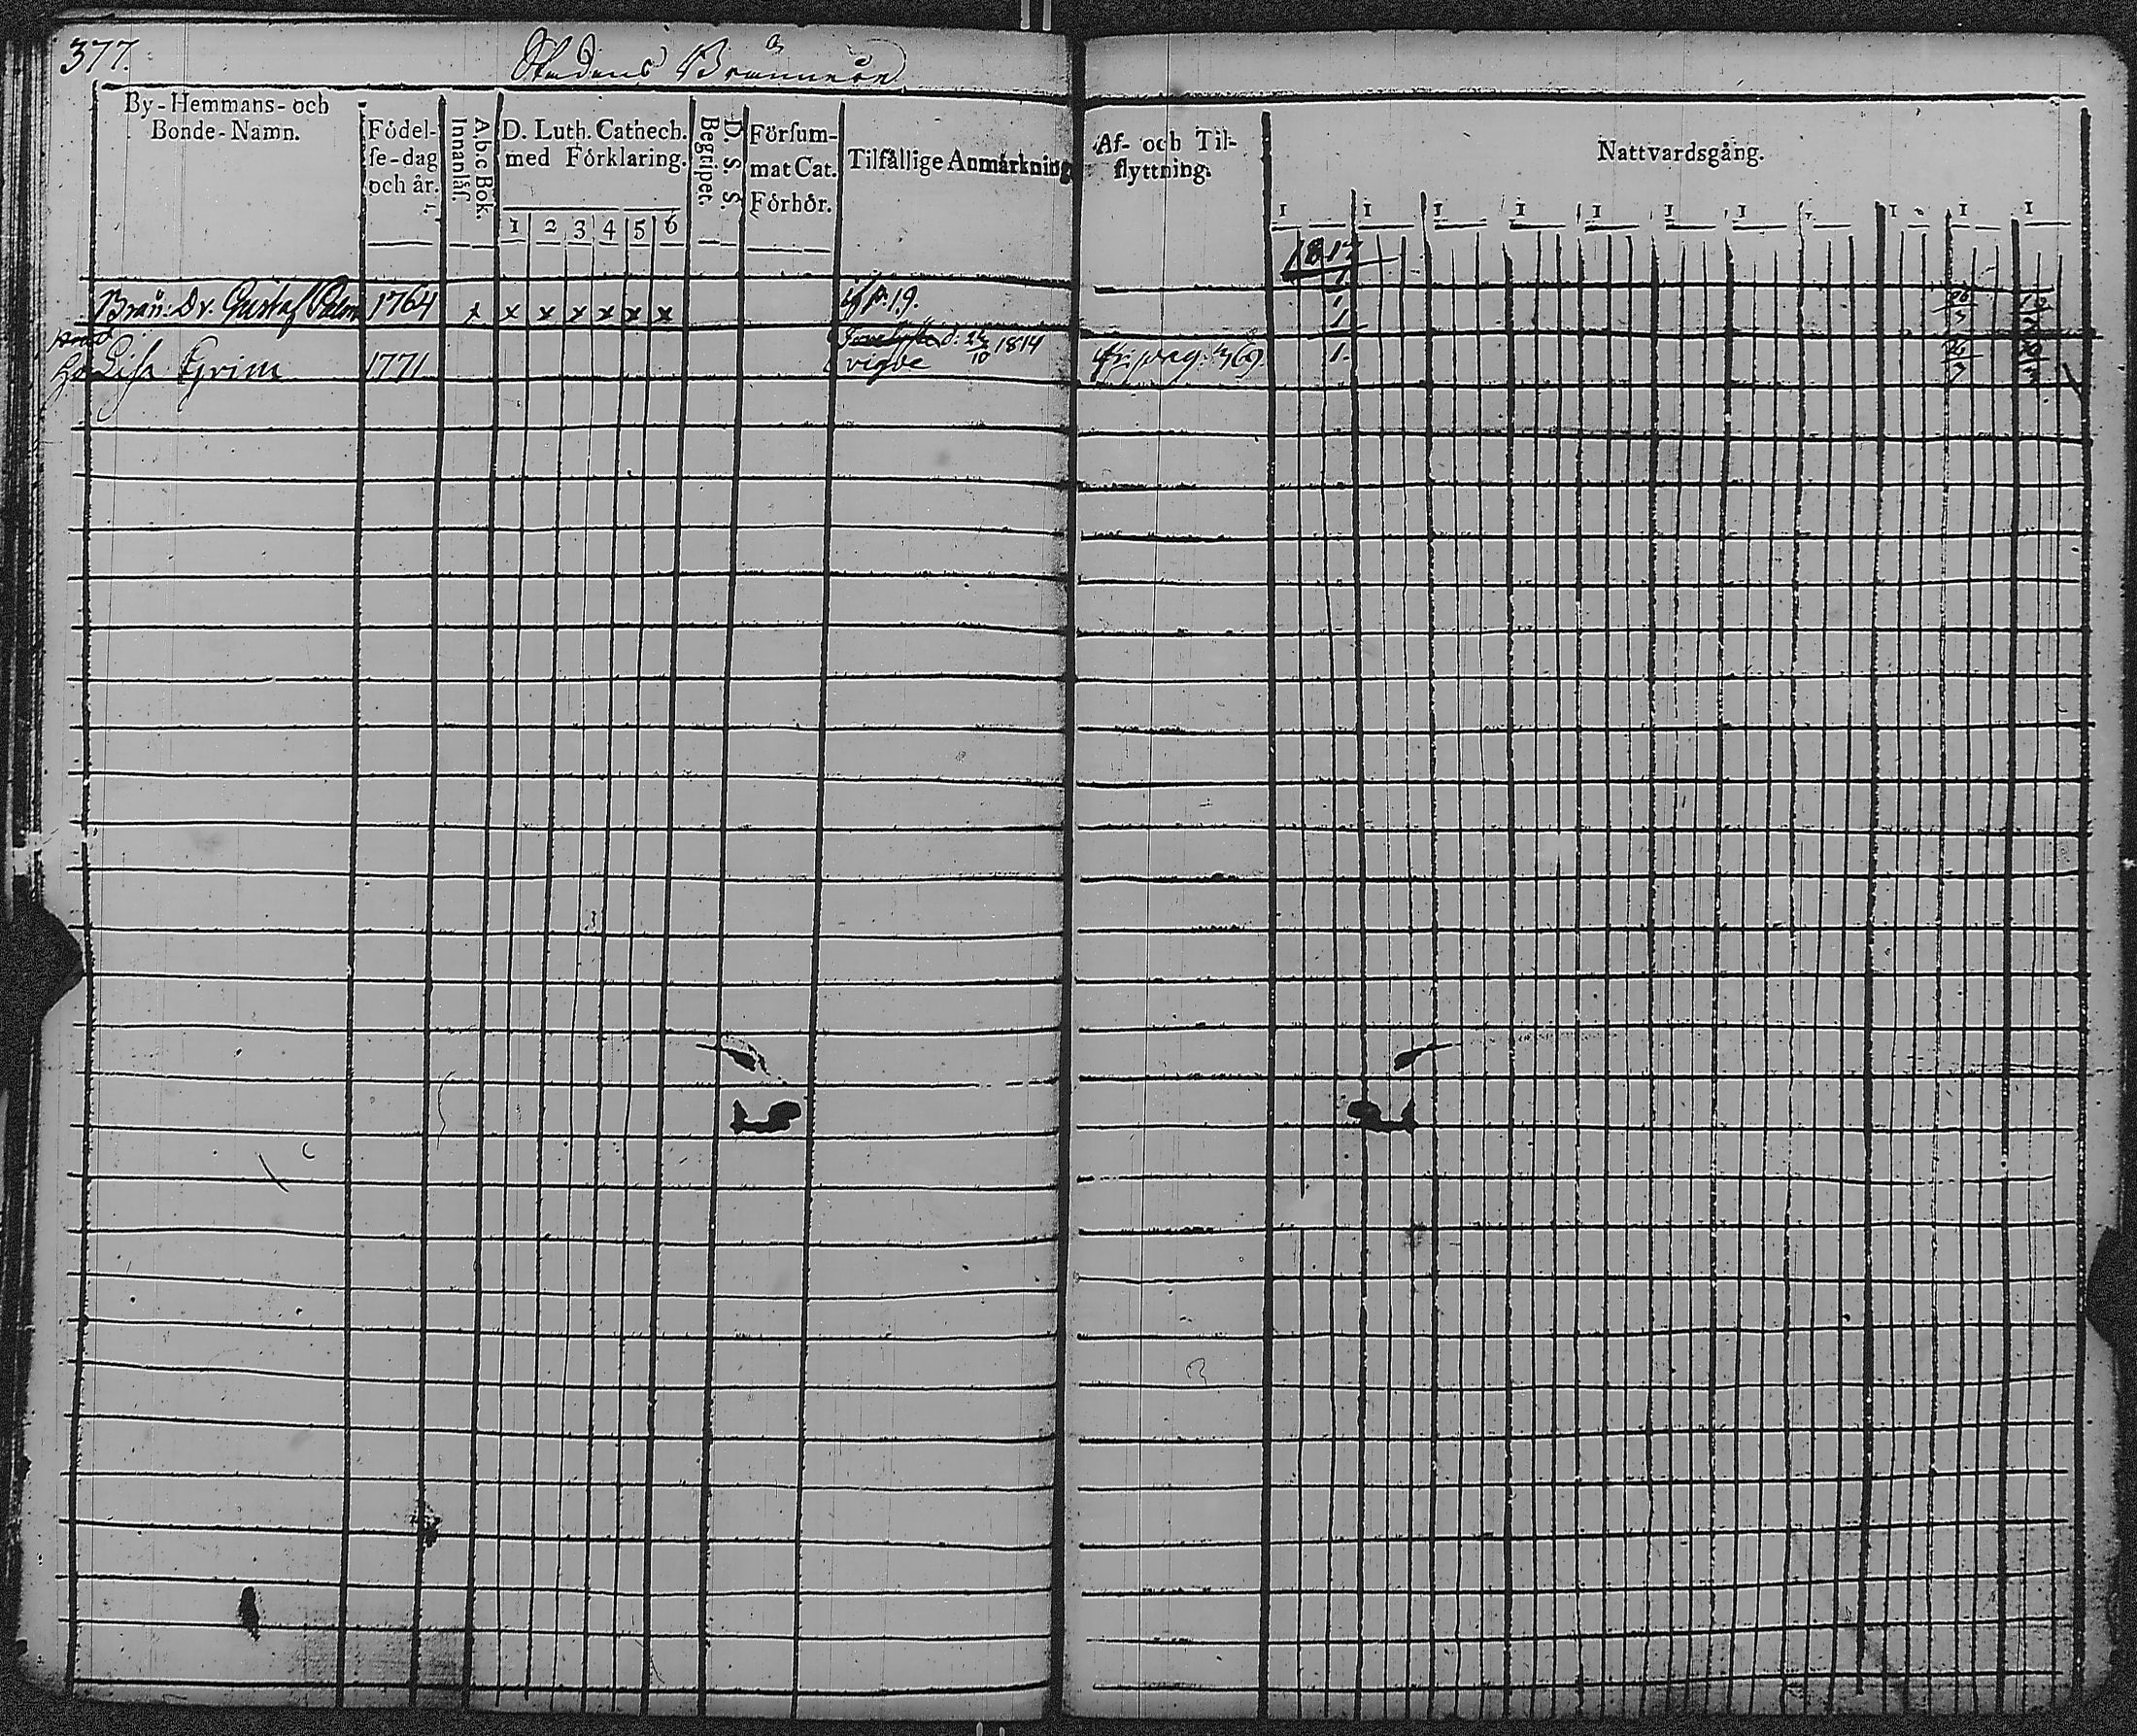 377.
Stadens Bränneri
By-Hemmans- och
Bonde-Namn.
Födel-
se-dag
och år.
A b c Bok.
Innanläs.
D. Luth. Cathech.
med Förklaring.
1 2 3 4 5 6
D. S. S.
Begriper.
Försum-
mat Cat.
Förhör.
Tilfällige Anmärkning
Af- och Til-
flyttning.
Nattvardsgång.
1 1 1 1 1 1 1 1 1 1
181
1
Brän: Dr. Gustaf Palm 1764 x x x x x x x p. 19. 1
1
Lisa Grim 1771 d: 1814 1.
vigde 10